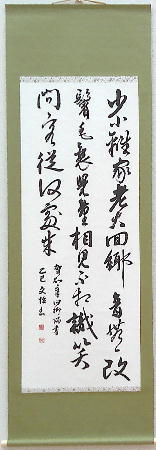 少小離家老大回鄉音無改
鬢毛衰兒童相見不相識笑
問客從何處來
賀知章回鄉偶書
乙巳文